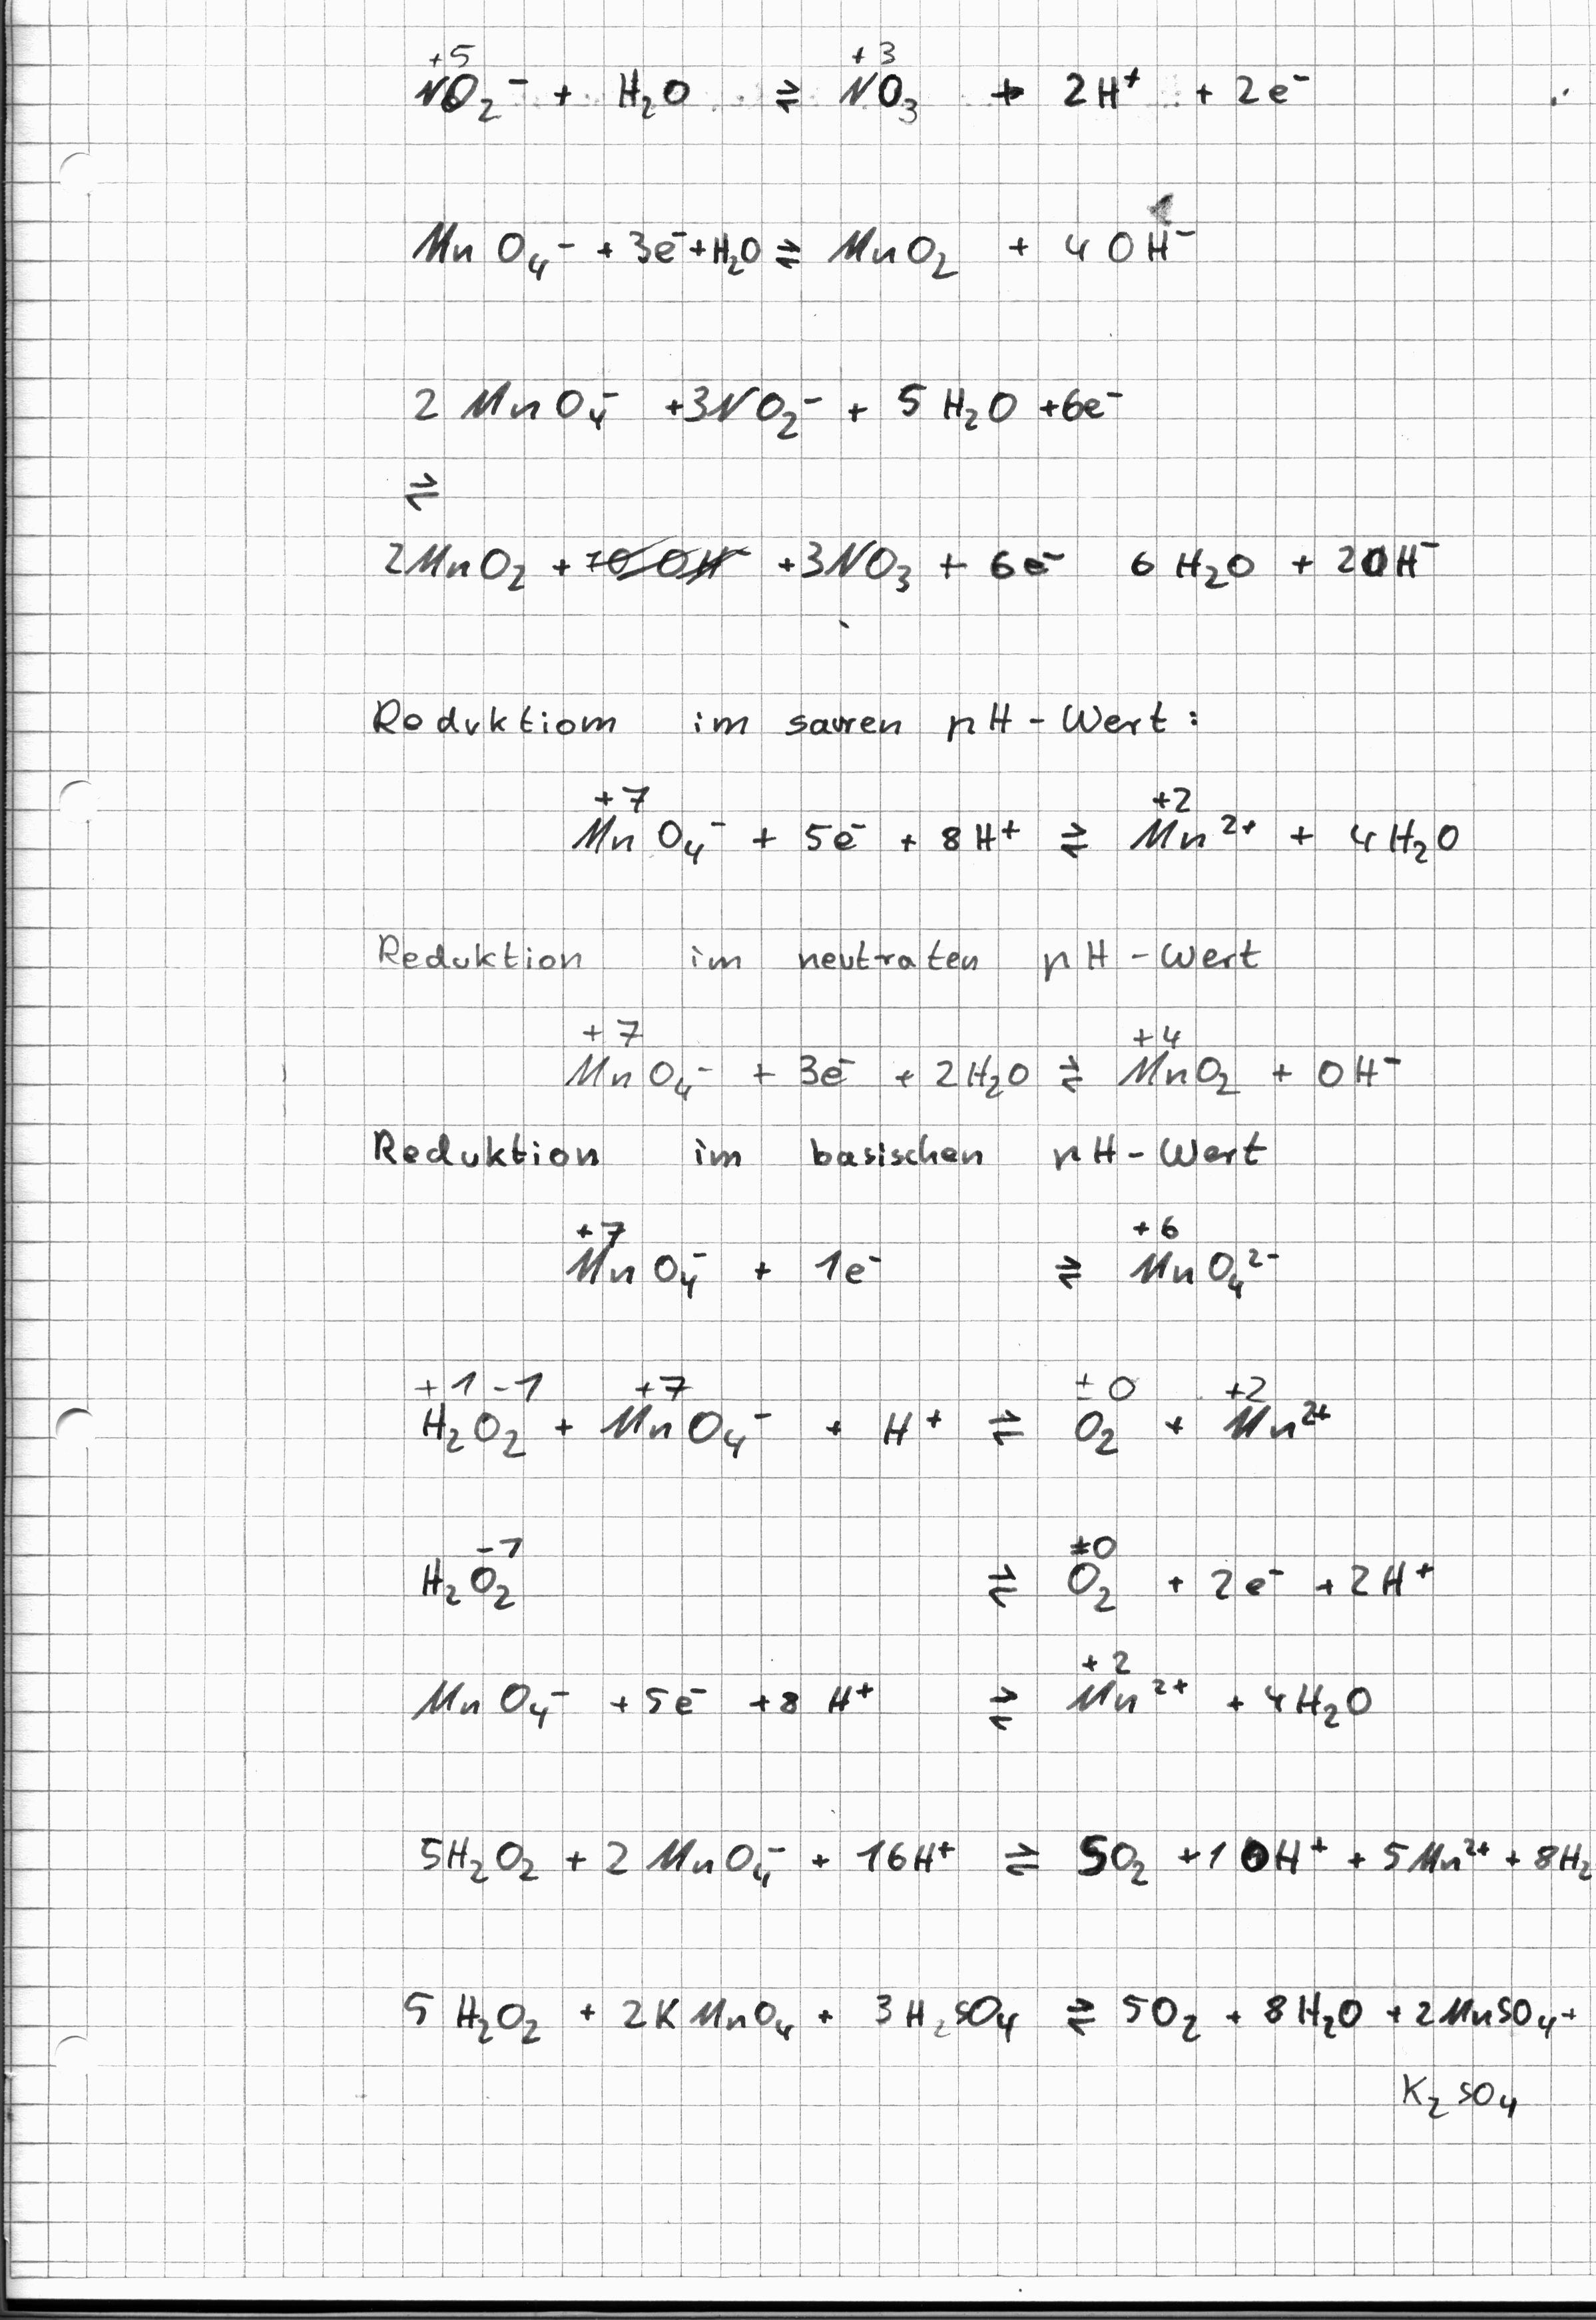 +5 +3
NO₂⁻ + H₂O ⇌ NO₃ + 2H⁺ + 2e⁻
MnO₄⁻ + 3e⁻ + H₂O ⇌ MnO₂ + 4OH⁻
2 MnO₄⁻ + 3NO₂⁻ + 5 H₂O + 6e⁻
⇌
2MnO₂ + 10 OH⁻ + 3NO₃ + 6e⁻ 6 H₂O + 2OH⁻
Roduktiom im sauren pH-Wert:
+7 +2
MnO₄⁻ + 5e⁻ + 8H⁺ ⇌ Mn²⁺ + 4H₂O
Reduktion im neutralen pH-Wert
+7 +4
MnO₄⁻ + 3e⁻ + 2H₂O ⇌ MnO₂ + OH⁻
Reduktion im basischen pH-Wert
+7 +6
MnO₄⁻ + 1e⁻ ⇌ MnO₄²⁻
+1 -1 +7 ±0 +2
H₂O₂ + MnO₄⁻ + H⁺ ⇌ O₂ + Mn²⁺
-1 ±0
H₂O₂ ⇌ O₂ + 2e⁻ + 2H⁺
+2
MnO₄⁻ + 5e⁻ + 8 H⁺ ⇌ Mn²⁺ + 4H₂O
5H₂O₂ + 2 MnO₄⁻ + 16H⁺ ⇌ 5O₂ + 10H⁺ + 5Mn²⁺ + 8H₂
5 H₂O₂ + 2KMnO₄ + 3H₂SO₄ ⇌ 5O₂ + 8H₂O + 2MnSO₄ +
K₂SO₄